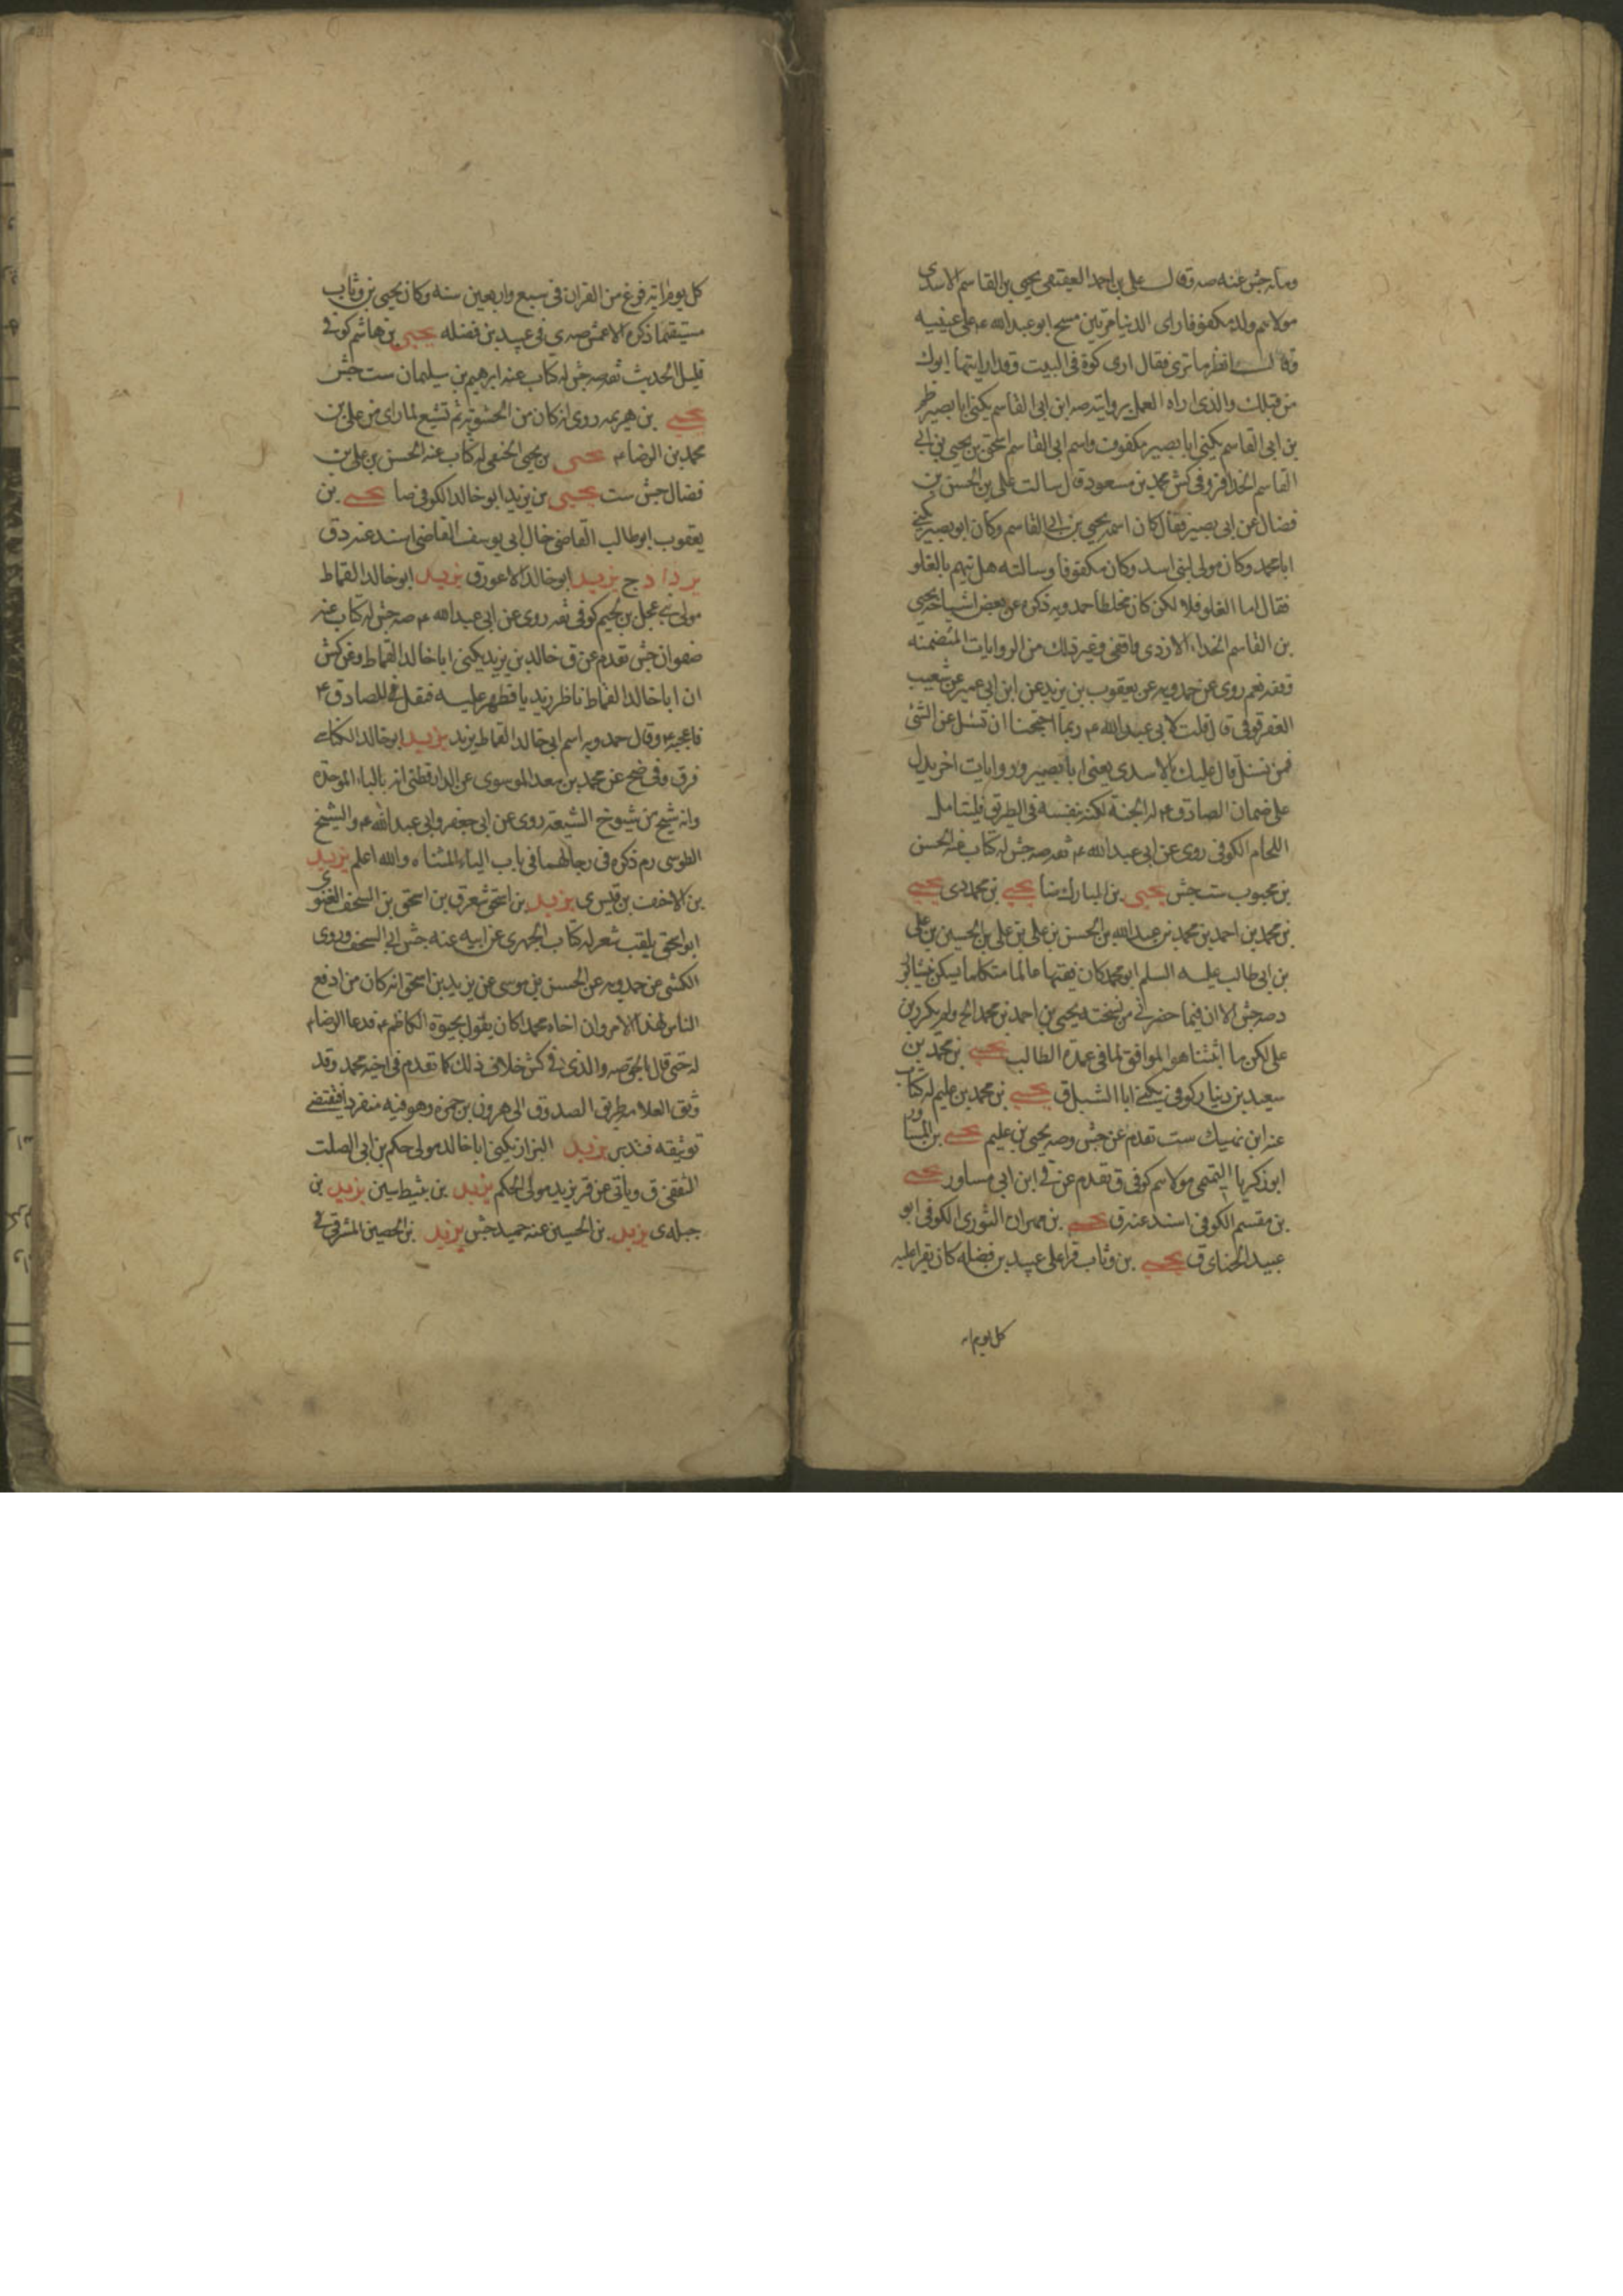 ومائه جش عنه صه وقال علي بن احمد العقيقي يحيى بن القاسم الاسدي
مولاهم ولد مكفوفا راى الدنيا مرتين مسح ابو عبد الله ع على عينيه
وقال انظر ما ترى فقال ارى كوة في البيت وقد ارانيها ابوك
من قبلك والذي اراه العمل بروايته صه ابن ابي القاسم يكنى ابا بصير
بن ابي القاسم يكنى ابا بصير مكفوف واسم ابي القاسم اسحق يحيى بن ابي
القاسم الحذا قر وفي كش محمد بن مسعود قال سالت علي بن الحسن بن
فضال عن ابي بصير فقال كان اسمه يحيى بن ابي القاسم وكان ابو بصير يكنى
ابا محمد وكان مولى لبني اسد وكان مكفوفا وسالته هل تيهم بالغلو
فقال اما الغلو فلا لكن كان مخلطا حمدويه ذكره عن بعض اشياخه يحيى
بن القاسم الحذاء الازدي واقفي وغير ذلك من الروايات المتضمنه
وقفه نعم روى عن حمدويه عن يعقوب بن يزيد عن ابن ابي عمير عن شعيب
العقرقوفي قال قلت لابي عبد الله ع ربما احتجنا ان نسئل عن الشئ
فمن نسئل قال عليك بالاسدي يعني ابا بصير وروايات اخر يدل
على ضمان الصادق ع له الجنة لكنه بنفسه في الطريق فليتامل
اللحام الكوفي روى عن ابي عبد الله ع ثقه صه جش له كتاب عنه الحسن
بن محبوب ست جش يحيى بن المبارك ضا يحيى بن محمد دي يحيى
بن محمد بن احمد بن محمد بن عبد الله بن الحسن بن علي بن علي بن الحسين بن علي
بن ابي طالب عليه السلم ابو محمد كان فقيها عالما متكلما يسكن نيشابور
صه جش الا ان فيما حضرني من نسخته يحيى بن احمد بن محمد الخ ولم يكرر بن
علي لكن ما اثبتناه هو الموافق لما في عمدة الطالب يحيى بن محمد بن
سعيد بن دينار كوفي يكنى ابا الشبل ق يحيى بن محمد بن عليم له كتاب
عنه ابن نهيك ست تقدم عن جش وصه يحيى بن عليم يحيى بن المساور
ابو زكريا التميمي مولاهم كوفي ق تقدم عن في ابن ابي مساور يحيى
بن مقسم الكوفي اسند عنه ق يحيى بن مهران الثوري الكوفي ابو
عبيد الحناي ق يحيى بن وثاب قرا على عبيد بن فضله كان يقرا عليه
كل يوم ايه
كل يوم اية فرغ من القران في سبع واربعين سنه وكان يحيى بن وثاب
مستقيما ذكره الاعمش صه ي في عبيد بن فضله يحيى بن هاشم كوفي
قليل الحديث ثقه صه جش له كتاب عنه ابرهيم بن سليمان ست جش
يحيى بن هرثمه روى انه كان من الحشويه ثم تشيع لما راى من علي بن
محمد بن الرضا ع يحيى بن يحيى الحنفي له كتاب عنه الحسن بن علي بن
فضال جش ست يحيى بن يزيد ابو خالد الكوفي ضا يحيى بن
يعقوب ابو طالب القاضي خال ابي يوسف القاضي اسند عنه ق
يزداد ج يزيد ابو خالد الاعور ق يزيد ابو خالد القماط
مولى بني عجل بن لجيم كوفي ثقه روى عن ابي عبد الله ع صه جش له كتاب عنه
صفوان جش تقدم عن ق خالد بن يزيد يكنى ابا خالد القماط وعن كش
ان ابا خالد القماط ناظر زيديا فظهر عليه فنقل للصادق ع
فاعجبه وقال حمدويه اسم ابي خالد القماط يزيد يزيد ابو خالد الكناسي
قر ق وفي ضح عن محمد بن معد الموسوي عن الدارقطني انه بالباء الموحدة
وانه شيخ من شيوخ الشيعة روى عن ابي جعفر وابي عبد الله ع والشيخ
الطوسي رم ذكره في رجالهما في باب الياء المثناه والله اعلم يزيد
بن الاحنف بن قيس ي يزيد بن اسحق شعر ق بن اسحق بن السخف الغنوي
ابو اسحق يلقب شعر له كتاب الجهري عن ابيه عنه جش ابي السخف وروى
الكشي عن حمدويه عن الحسن بن موسى عن يزيد بن اسحق انه كان من ادفع
الناس لهذا الامر وان اخاه محمدا كان يقول بحيوة الكاظم ع فدعا الرضا ع
له حتى قال بالحق صه والذي في كش خلاف ذلك كما تقدم في اخيه محمد وقد
وثق العلامه طريق الصدوق الى هرون بن حمزه وهو فيه منفردا فيقتضي
توثيقه فتدبر يزيد البزاز يكنى ابا خالد مولى حكم بن ابي الصلت
الثقفي ق وياتي عن قر يزيد مولى الحكم يزيد بن ثبيط سين يزيد بن
جبله ي يزيد بن الحسين عنه حميد جش يزيد بن الحصين المشرقي في